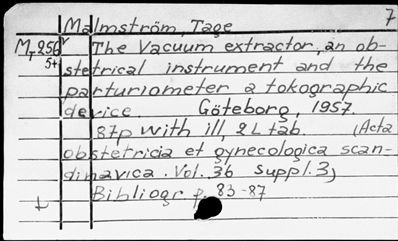 Malmström, Tage 7
M, 256 v The Vacuum extractor, an ob-
5+ stetrical instrument and the
parturiometer a tokographic
device. Göteborg, 1957.
87p with ill, 2 L tab. (Acta
obstetricia et gynecologica scan-
dinavica. Vol. 36 Suppl. 3)
Bibliogr p. 83-87